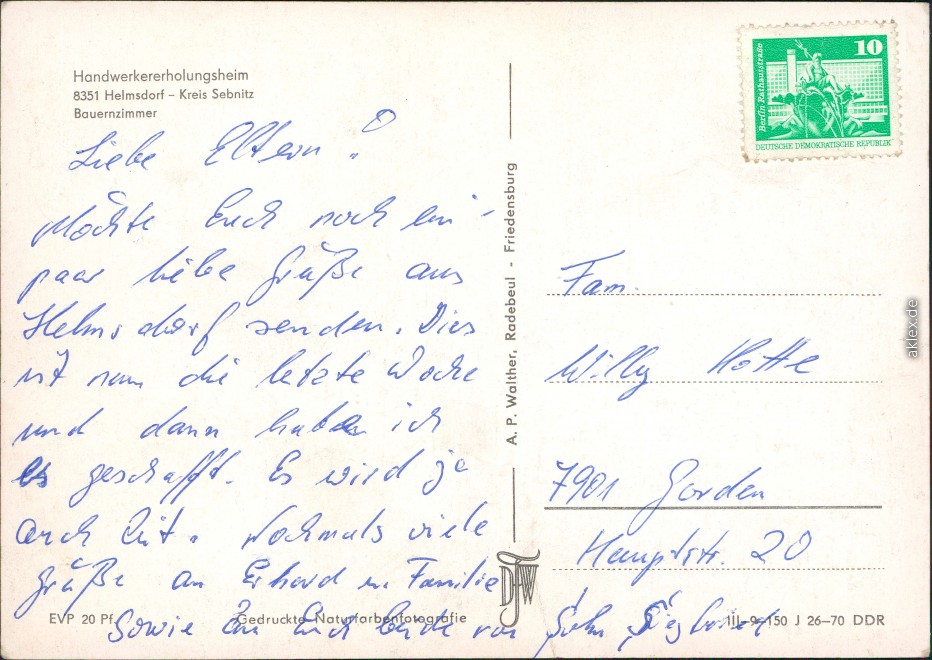 Handwerkererholungsheim
8351 Helmsdorf – Kreis Sebnitz
Bauernzimmer
Liebe Eltern!
Möchte Euch noch ein
paar liebe Grüße aus
Helmsdorf senden. Dies
ist nun die letzte Woche
und dann habe ich
es geschafft. Es wird ja
auch Zeit. Nochmals viele
Grüße an Erhard u. Familie
Sowie an Euch beide von Sohn
EVP 20 Pf. Gedruckte Naturfarbenfotografie
A. P. Walther, Radebeul - Friedensburg
10
Berlin-Rathausstraße
DEUTSCHE DEMOKRATISCHE REPUBLIK
Fam.
Willy
7901 Gorden
Hauptstr. 20
III-9-150 J 26–70 DDR
aklex.de